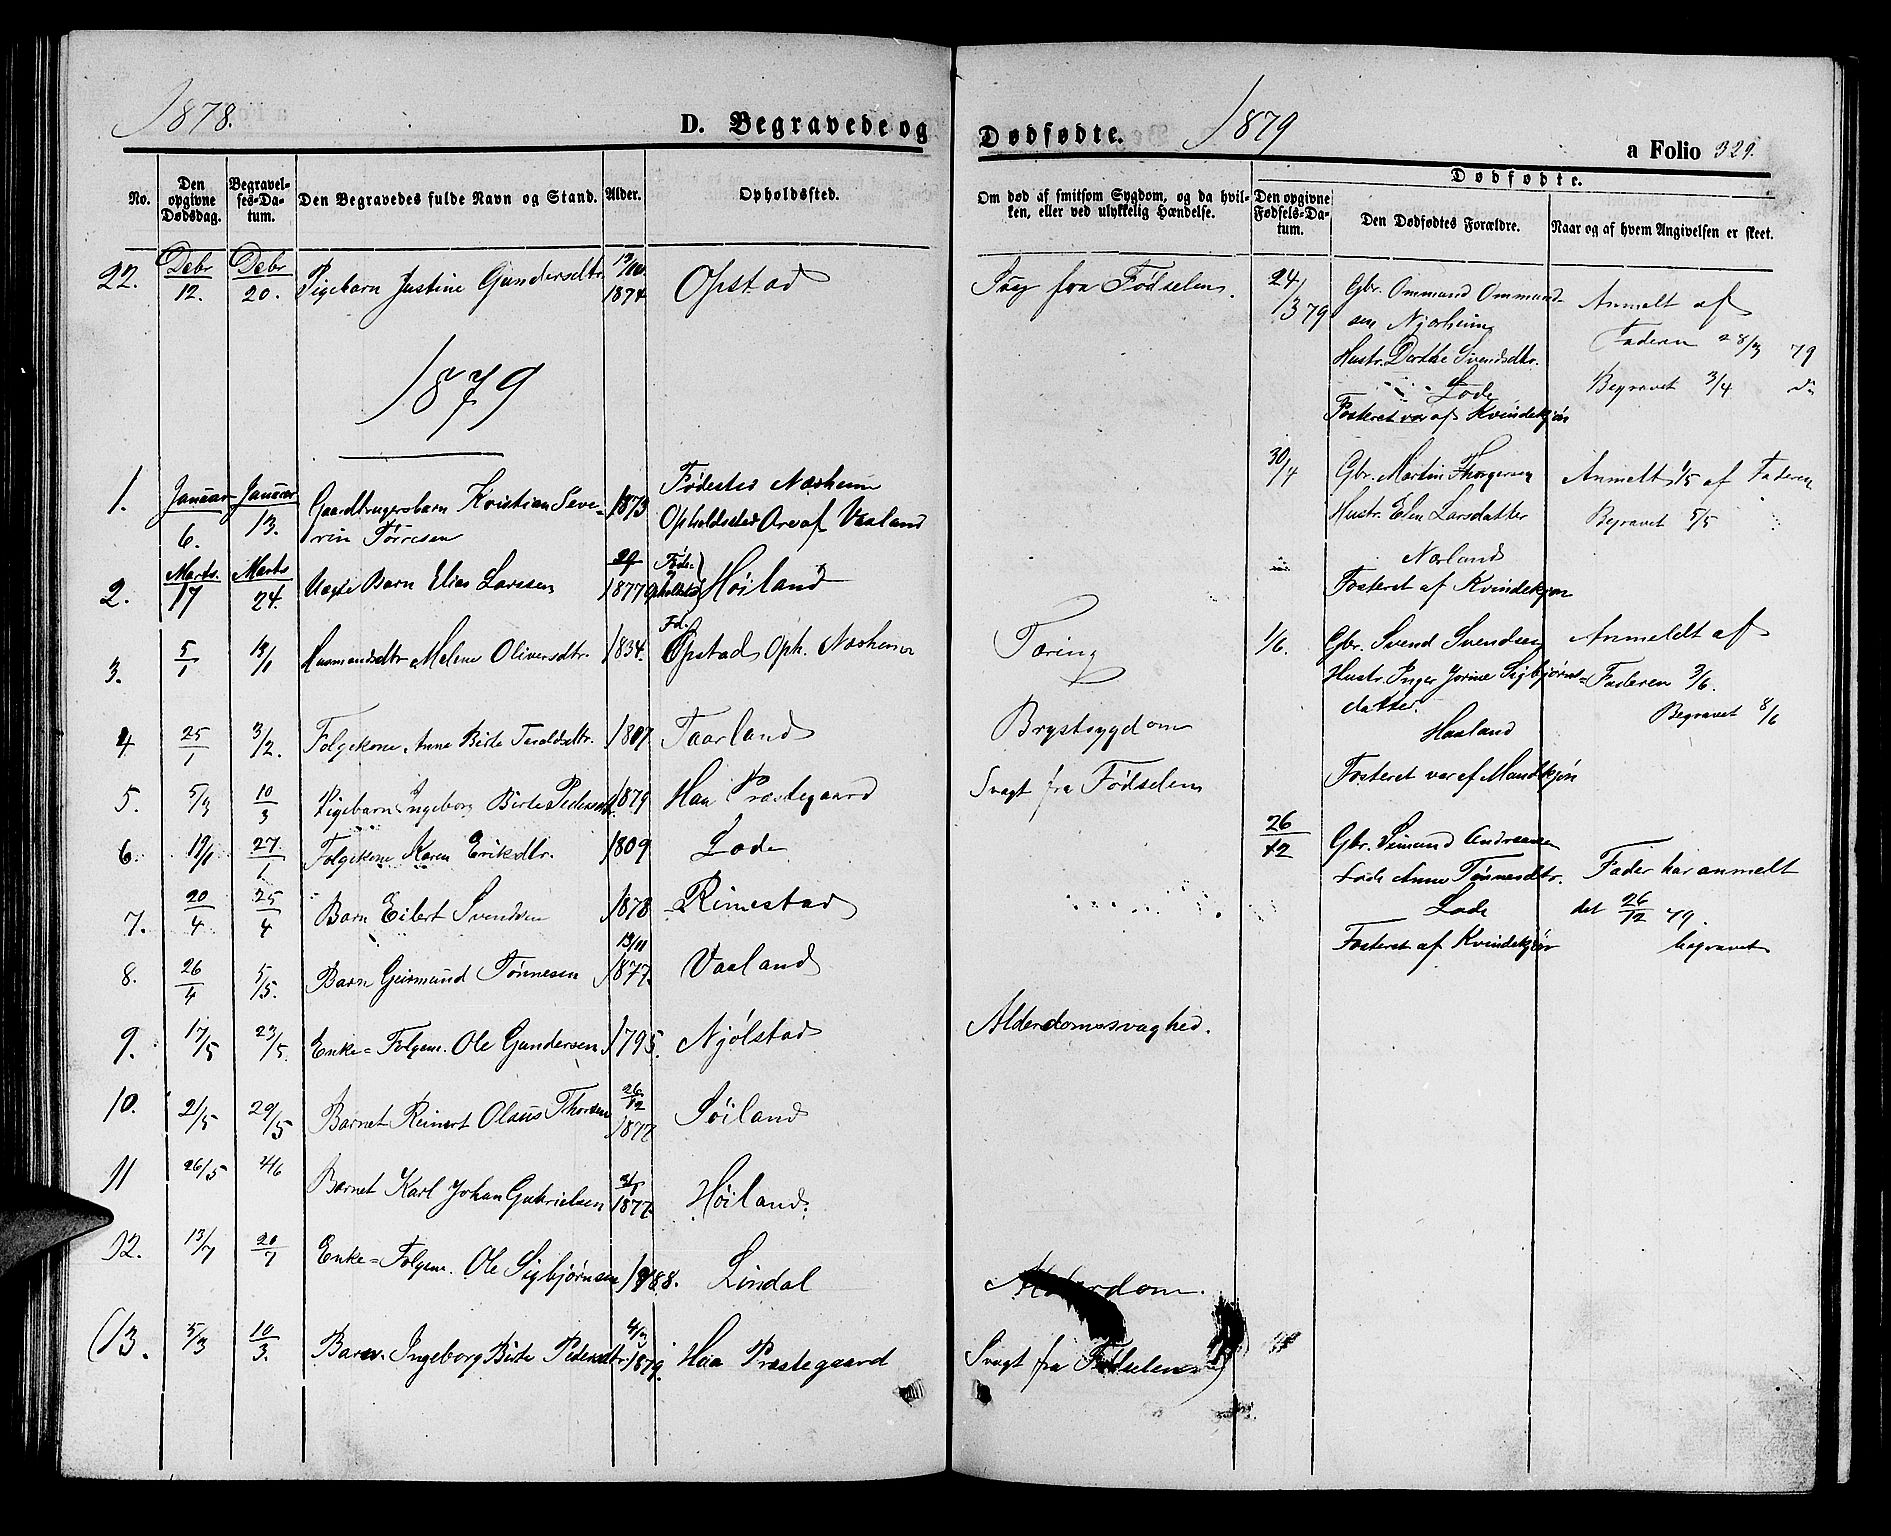 1878.
D. Begravede og
No.
Den opgivne Dødsdag.
Begravelses-Datum.
Den Begravedes fulde Navn og Stand.
Alder.
Opholdssted.
22. Debr 12. Debr 20. Pigebarn Justine Gundersdtr. 1874 Opstad
1879
1. Januar 6. Januar 13. Gaardbrugersbarn Kristian Seve-
rin Tørresen 1873 Fødested Næsheim
Opholdssted Vaaland
2. Marts. 17 Marts 24. Barn Elias Larssen 1877 Høiland
3. 5/1 13/1 Husmandsdtr Melene Oliversdtr. 1834. Fd. Opstad Oph. Næsheim
4 25/1 3/2. Folgekone Anne Birte Taraldsdtr. 1807. Taarland
5. 5/3 10/3 Pigebarn Ingeborg Birte Pedersdtr. 1879 Haa Præstegaard
6. 19/1 27/1 Folgekone Karen Eriksdtr. 1809 Lode
7. 20/4 25/4 Barn Eilert Svendsen 1878 Rimestad
8. 26/4 5/5. Barn Geirmund Tønnesen 13/11 1877. Vaaland
9. 17/5 23/5. Enke=Folgem. Ole Gundersen 1795. Njølstad
10. 21/5 29/5 Barnet Reinert Olaus Thorsen 26/12 1877 Søiland
11 26/5 4/6 Barnet Karl Johan Gabrielsen 1877. Høiland.
12. 13/7 20/7 Enke=Folgem. Ole Sigbjørnsen 1788. Lindal
(13. 5/3 10/3. Barn. Ingeborg Birte Pedersdtr. 4/3 1879. Haa Præstegaard
Dødfødte.
1879
a Folio 329.
Om død af smitsom Sygdom, og da hvil-
ken, eller ved ulykkelig Hændelse.
Dødfødte.
Den opgivne Fødsels-Datum.
Den Dødfødtes Forældre.
Naar og af hvem Angivelsen er skeet.
Svag fra Fødselen.
Tæring
Brystsygdom
Svagt fra Fødselen
Alderdomssvaghed.
Alderdom.
Svagt fra Fødselen)
24/3 79 Gbr. Ommund Ommund-
sen Njærheim
Hustr. Dorthe Svendsdtr.
Lode
Fosteret var af Kvindekjøn
Anmelt af
Faderen 28/3 79
Begravet 3/4 do
30/4 Gbr. Martin Thorgersen
Hustr. Elen Larsdatter
Nærland
Fosteret af Kvindekjøn
Anmelt 1/5 af Faderen
Begravet 5/5
1/6. Gbr. Svend Svendsen
Hustr. Inger Jorine Sigbjørns=
datter.
Haaland
Fosteret var af Mandkjøn
Anmeldt af
Faderen 3/6.
Begravet 8/6
26/12 Gbr. Simund Andreasen
Lode Anne Tønnesdtr.
Lode
Fosteret af Kvindekjøn
Fader har anmelt
det 26/12 79.
begravet